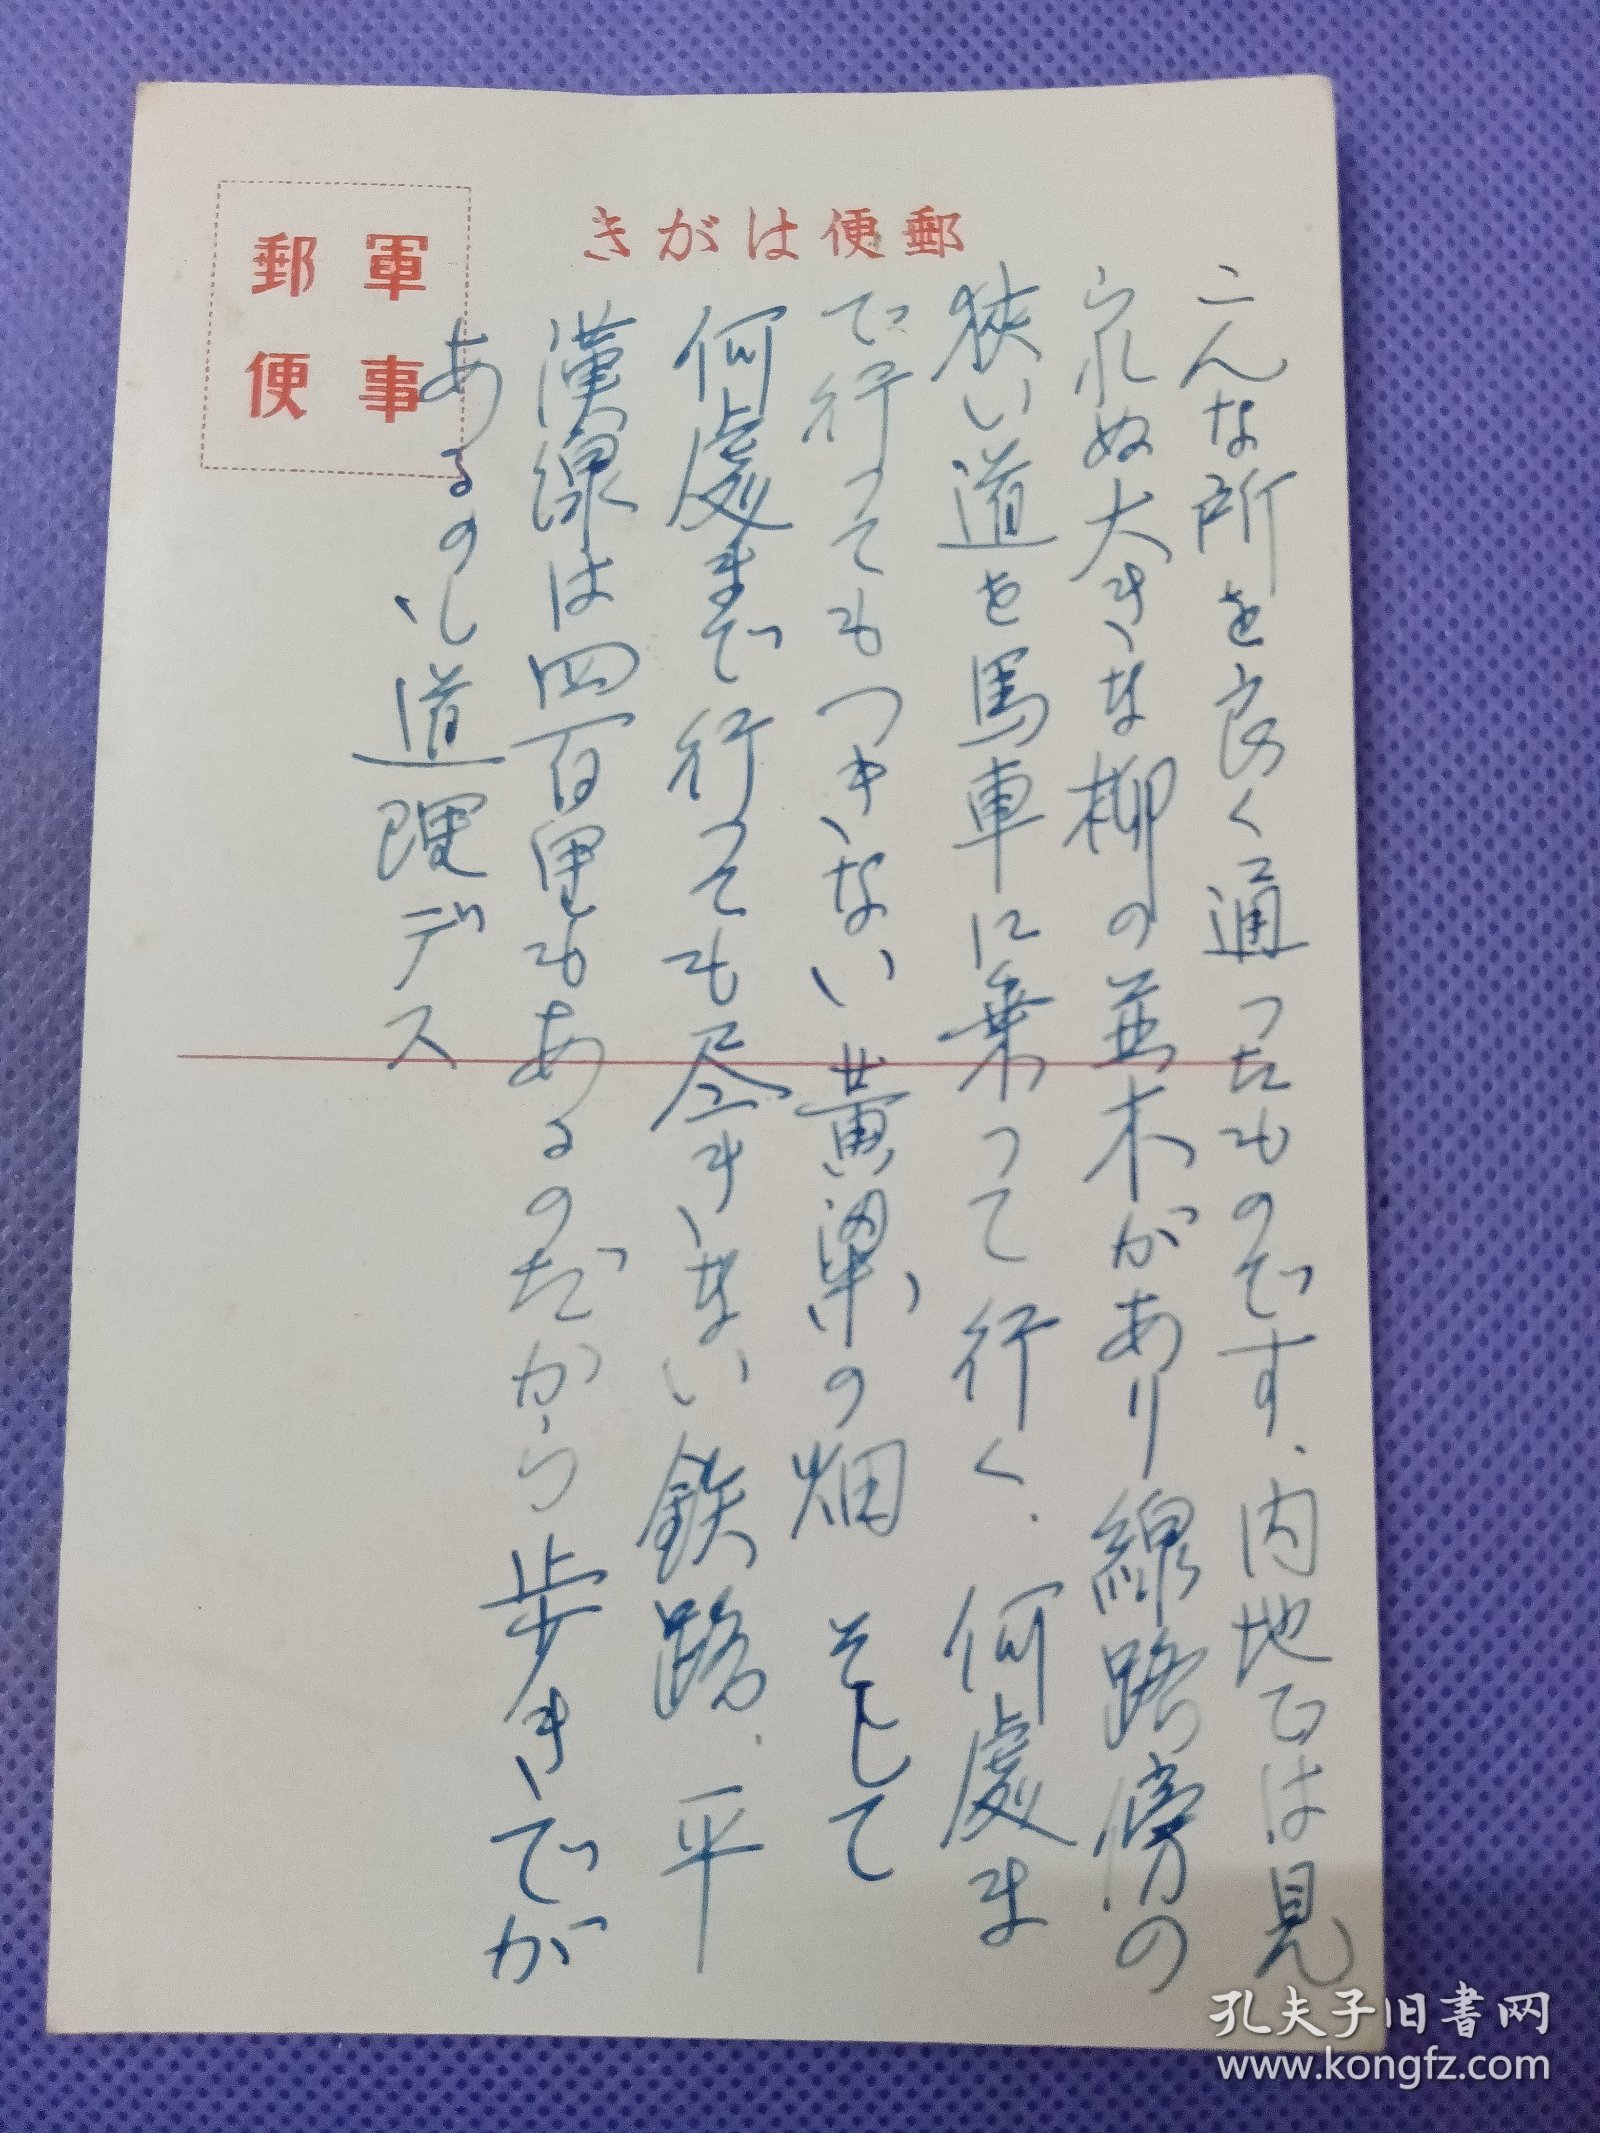 郵便はがき
軍事
郵便
こんな所を良く通ったものです、内地では見
られぬ大きな柳の並木があり線路傍の
狭い道を馬車に乗って行く、何處ま
で行ってもつきない黄粱の畑 そして
何處まで行っても尽きない鉄路、平
漢線は四百里もあるのだから歩きでが
あるのも道理デス
孔夫子旧书网
www.kongfz.com